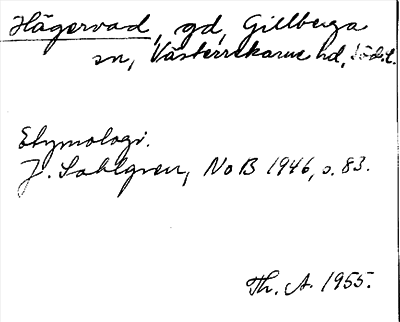 Hägervad, gd, Gillberga
sn, Västerrekarne hd, Södml.
Etymologi.
J. Sahlgren, NoB 1946, s. 83.
Th. A. 1955.